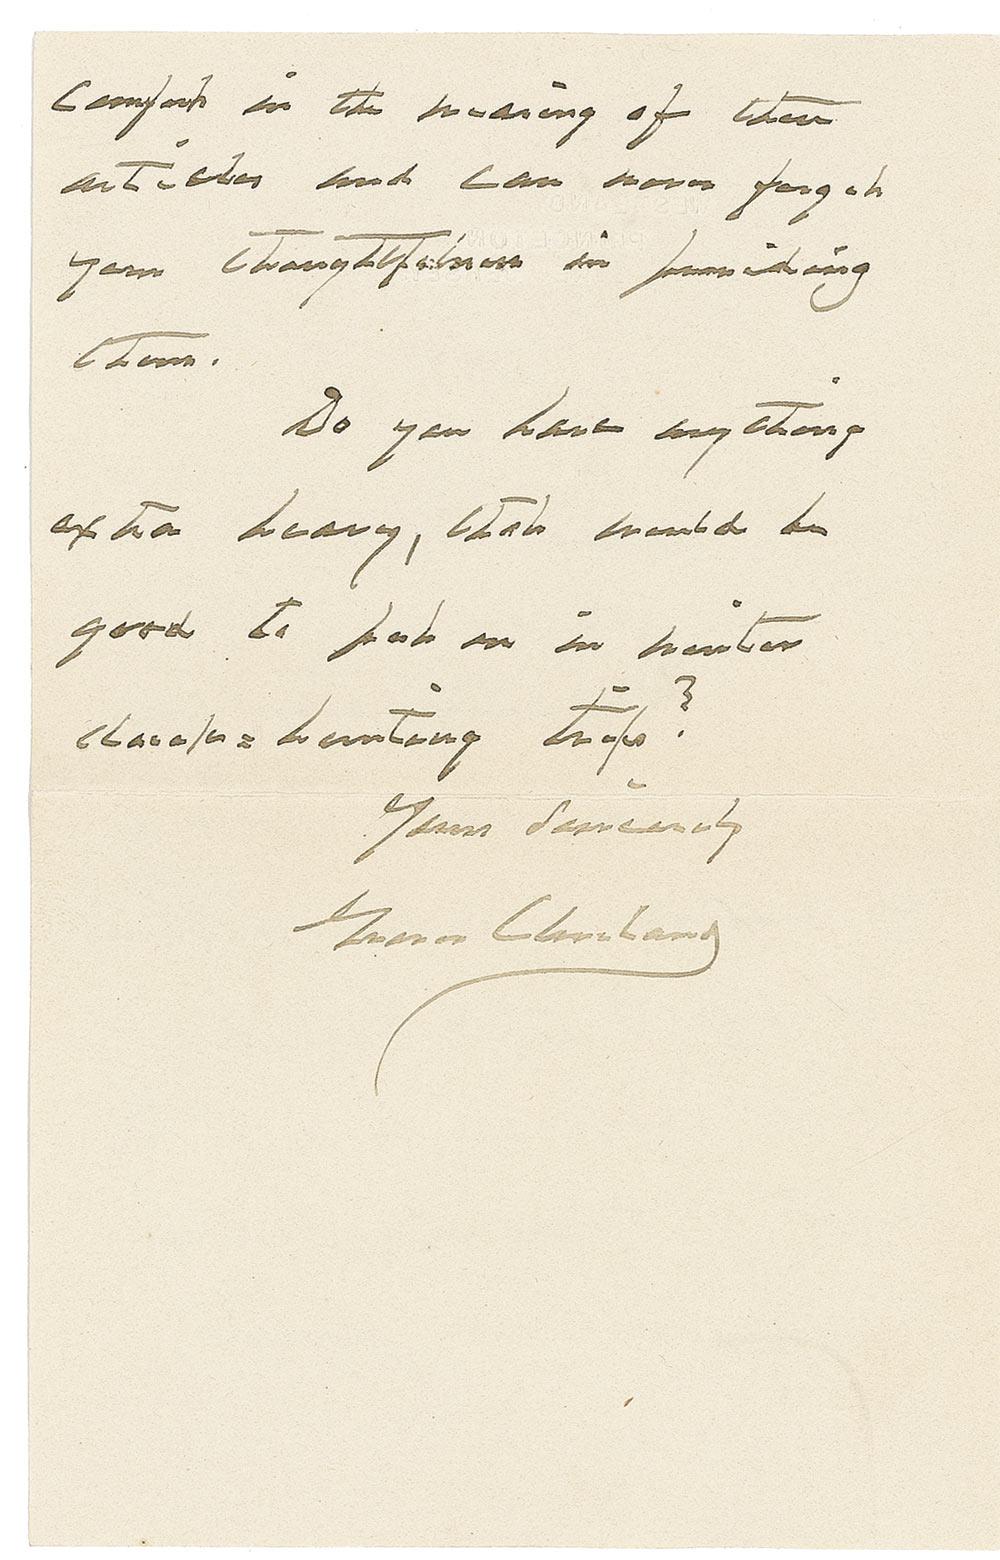 comfort in the wearing of these
articles and can never forget
your thoughtfulness in providing
them.
Do you have anything
extra heavy, that would be
good to put on in winter
hunting trips?
Yours sincerely
Grover Cleveland